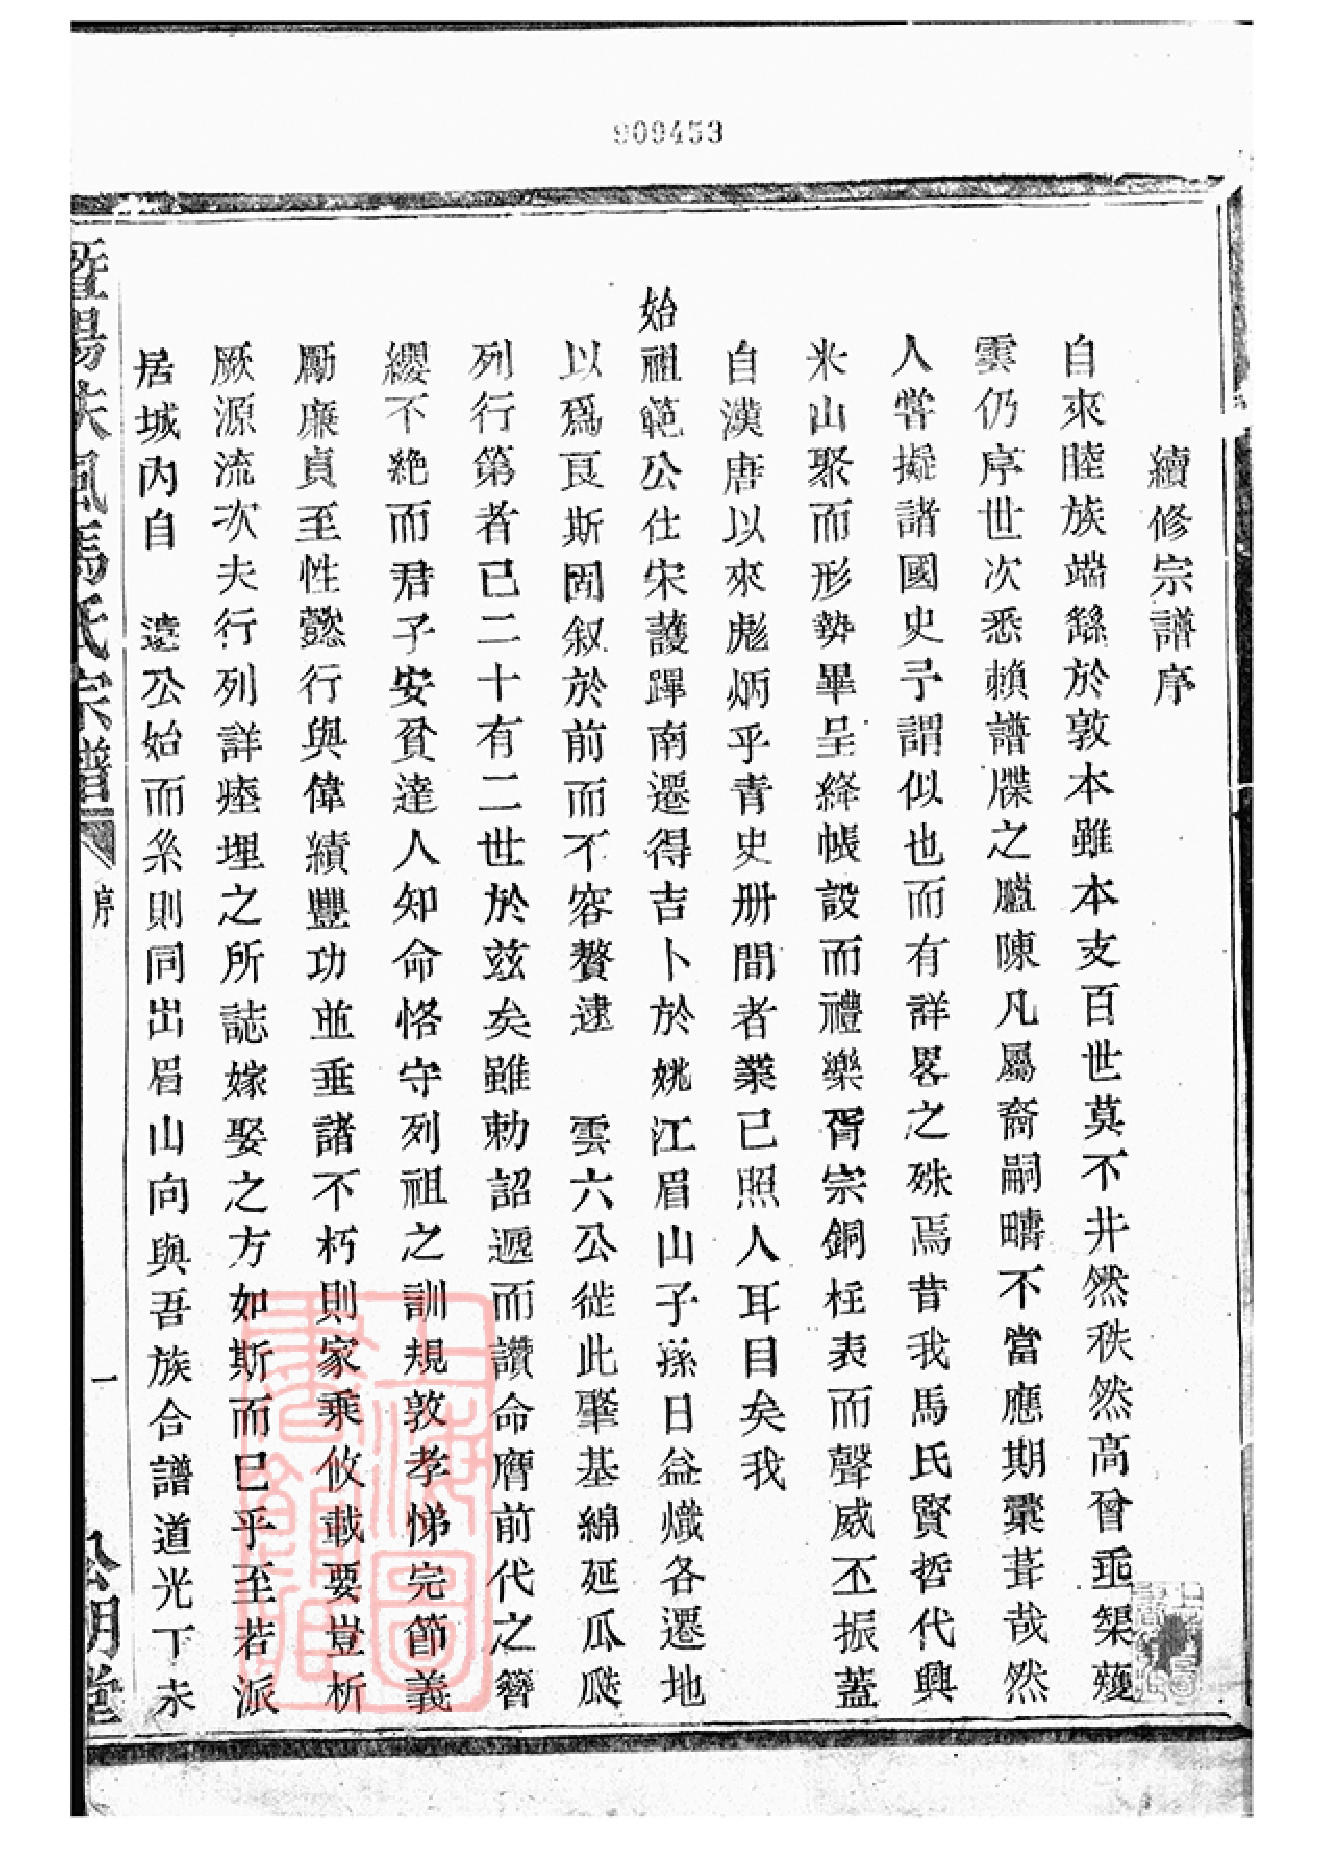 909453
續修宗譜序
自來睦族端繇於敦本雖本支百世莫不井然秩然高曾垂榘薙
雲仍序世次悉賴譜牒之臚陳凡屬裔嗣疇不當應期彙葺哉然
人嘗擬諸國史予謂似也而有詳畧之殊焉昔我馬氏賢哲代興
米山聚而形勢畢呈絳帳設而禮樂胥宗銅柱表而聲威丕振蓋
自漢唐以來彪炳乎青史册間者業已照人耳目矣我
始祖範公仕宋護蹕南遷得吉卜於姚江眉山子孫日益熾各遷地
以爲艮斯固叙於前而不容贅逮 雲六公徙此肇基綿延瓜瓞
列行第者已二十有二世於兹矣雖勅詔遞而讚命膺前代之簪
纓不絶而君子安貧達人知命恪守列祖之訓規敦孝悌完節義
勵廉貞至性懿行與偉績豐功並垂諸不朽則家乘攸載要豈析
厥源流次夫行列詳瘞埋之所誌嫁娶之方如斯而已乎至若派
居城内自 遠公始而系則同出眉山向與吾族合譜道光丁未
暨陽扶風馬氏宗譜
序
一